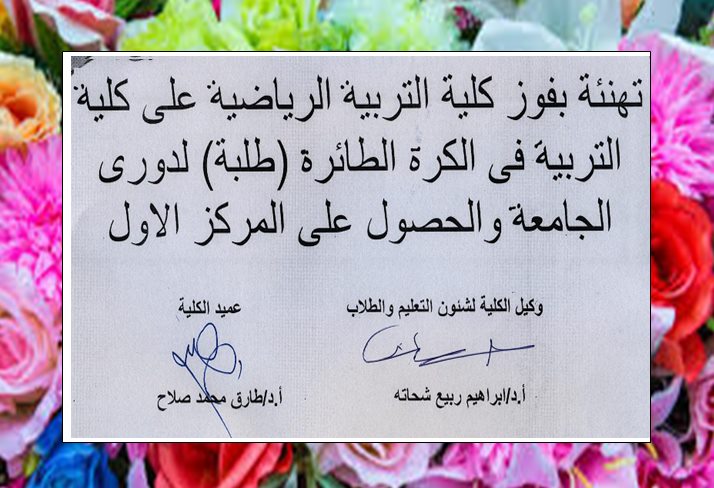 تهنئة بفوز كلية التربية الرياضية على كلية
التربية فى الكرة الطائرة (طلبة) لدورى
الجامعة والحصول على المركز الاول
وكيل الكلية لشئون التعليم والطلاب
عميد الكلية
أ.د/ابراهيم ربيع شحاته
أ.د/طارق محمد صلاح